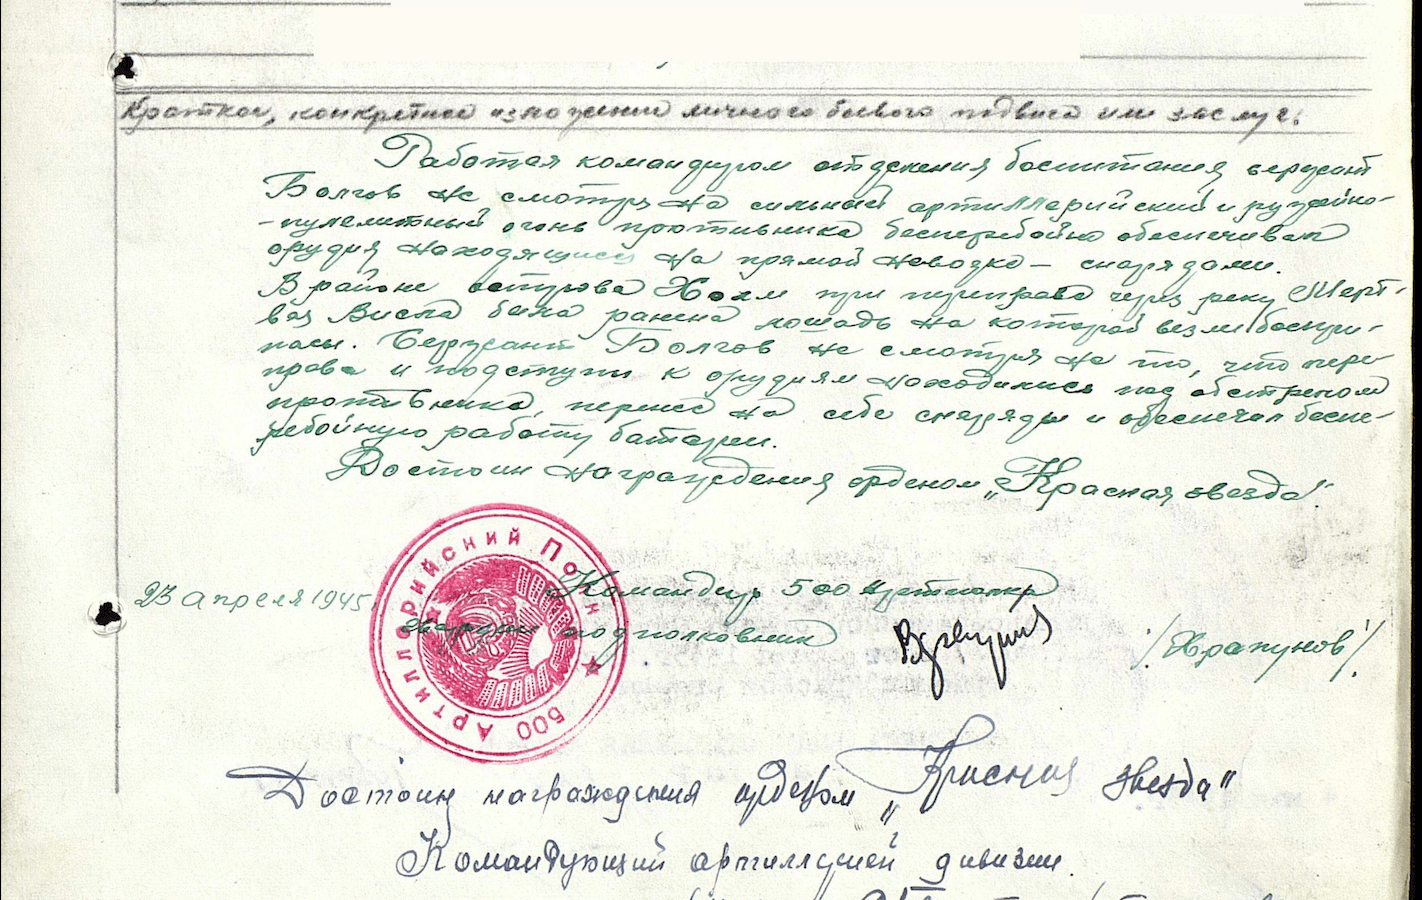 Краткое, конкретное изложение личного боевого подвига или заслуг.
Работая командиром отделения боепитания сержант
Болгов не смотря на сильный артиллерийский и ружейно-
-пулеметный огонь противника бесперебойно обеспечивал
орудия находящиеся на прямой наводке – снарядами.
В районе острова Холм при переправе через реку Мерт-
вая Висла была ранена лошадь на которой везли боепри-
пасы. Сержант Болгов не смотря на то, что пере-
права и подступы к орудиям находились под обстрелом
противника, перенес на себе снаряды и обеспечил беспе-
ребойную работу батареи.
Достоин награждения орденом „Красная звезда".
23 апреля 1945г.
Командир 500
гвардии подполковник
/Храпунов/.
500 Артиллерийский Полк
Достоин награждения орденом „Красная звезда"
Командующий артиллерией дивизии.